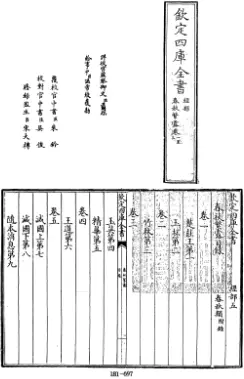 欽定四庫全書
經部
春秋繁露卷一至
詳校官監察御史
給事中臣溫常綬覆勘
覆校官中書臣朱鈐
校對官中書臣吳俊
謄錄監生臣宋大樽
欽定四庫全書
經部五
春秋繁露目錄
春秋類附錄
卷一
楚莊王第一
卷二
玉杯第二
竹林第三
卷三
玉英第四
精華第五
卷四
王道第六
卷五
滅國上第七
滅國下第八
隨本消息第九
181-697